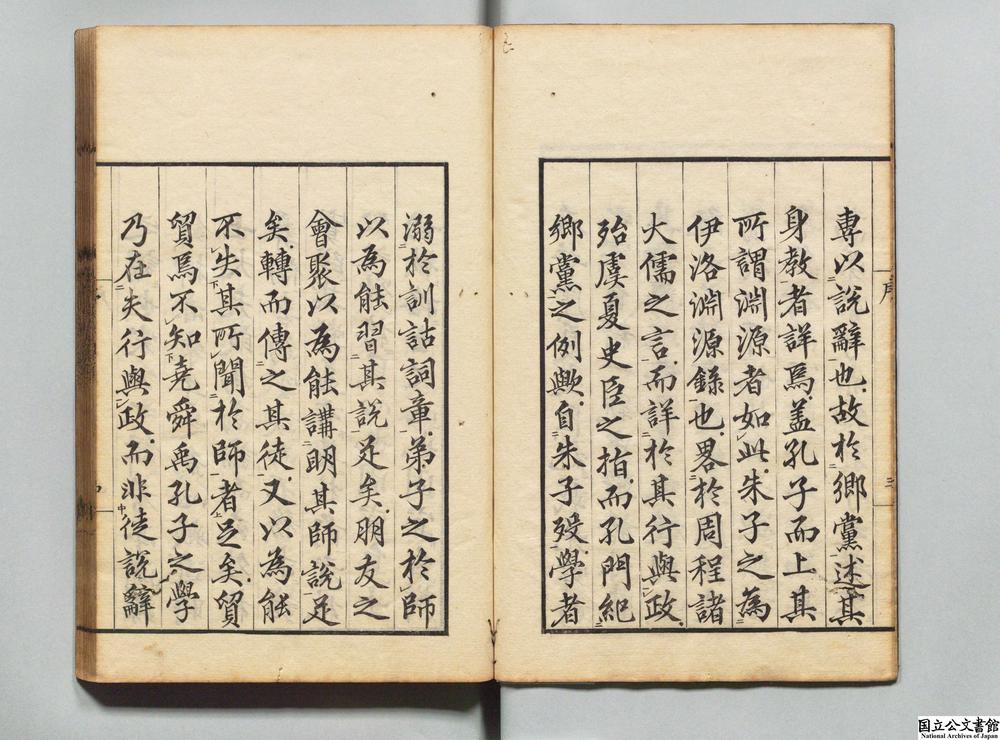 專以說辭也故於鄉黨述其
身教者詳焉盖孔子而上其
所謂淵源者如此朱子之為
伊洛淵源錄也畧於周程諸
大儒之言而詳於其行與政
殆虞夏史臣之指而孔門紀
鄉黨之例歟自朱子歿學者
溺於訓詁詞章弟子之於師
以為能習其說足矣朋友之
會聚以為能講明其師說足
矣轉而傳之其徒又以為能
不失其所聞於師者足矣貿
貿焉不知堯舜禹孔子之學
乃在夫行與政而非徒說辭
序
三
国立公文書館
National Archives of Japan